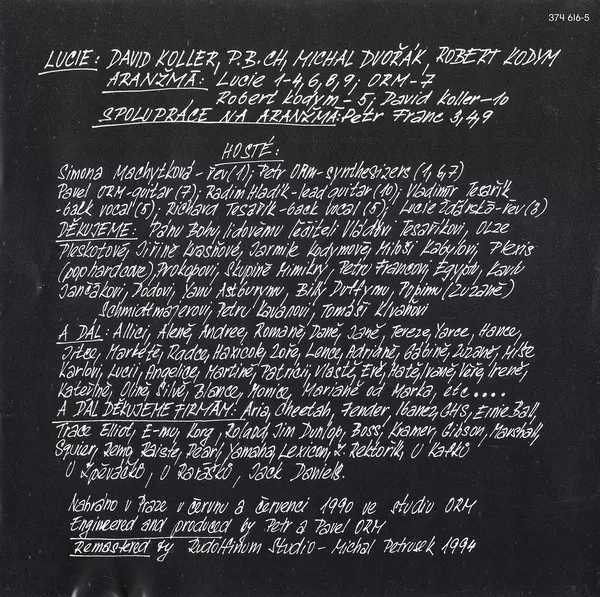 374 616-5
LUCIE: DAVID KOLLER, P.B.CH, MICHAL DVOŘÁK, ROBERT KODYM
ARANŽMÁ: Lucie 1-4,6,8,9; ORM-7
Robert Kodym-5; David Koller-10
SPOLUPRÁCE NA ARANŽMÁ: Petr Franc 3,4,9
HOSTÉ:
Simona Machytková-řev(1); Petr ORM-synthesizers (1,6,7)
Pavel ORM-guitar (7); Radim Hladík-lead guitar (10); Vladimír Tesařík
-back vocal (5); Richard Tesařík-back vocal (5); Lucie Žďárská-řev(3)
DĚKUJEME: Pánu Bohu, lidovému léčiteli Vláďovi Tesaříkovi, Olze
Pleskotové, Jiřině Kvasňové, Jarmile Kodymové, Miloši Kabylovi, Plexis
(pophardcore), Prokopovi, Skupině Mimikry, Petru Francovi, Egypťo,
Jančákovi, Dodovi, Yanu Astburymu, Billy Duffymu, Pepimu (Zuzaně)
Schmidtmajerovi, Petru Kavanovi, Tomáši Klvaňovi
A DÁL: Allici, Aleně, Andree, Romaně, Daně, Janě, Tereze, Yarce, Hance,
Jitce, Markétě, Radce, Haxicok, Zoře, Lence, Adrianě, Gábině, Zuzaně, Míše
Karlovi, Lucii, Angelice, Martině, Patricii, Vlastě, Evě, Matěj, Ivaně, Věře, Ireně,
Kateřině, Olině, Silvě, Blance, Monice, Marianě od Marka, etc....
A DÁL DĚKUJEME FIRMÁM: Aria, Cheetah, Fender, Ibanez, GHS, Ernie Ball,
Trace Elliot, E-mu, Korg, Roland, Jim Dunlop, Boss, Kramer, Gibson, Marshall,
Squier, Remo, Paiste, Pearl, Yamaha, Lexicon, Ž. Rektorik, U Kafků
U Zpěváčků, U Parašků, Jack Daniels.
Nahráno v Praze v červnu a červenci 1990 ve studiu ORM
Engineered and produced by Petr a Pavel ORM
Remastered by Rudolfinum Studio-Michal Petrusek 1994